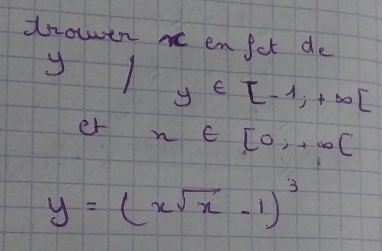 trouver x en fct de
y / y ∈ [-1, +∞[
et x ∈ [0, +∞[
y = (x√x - 1)³